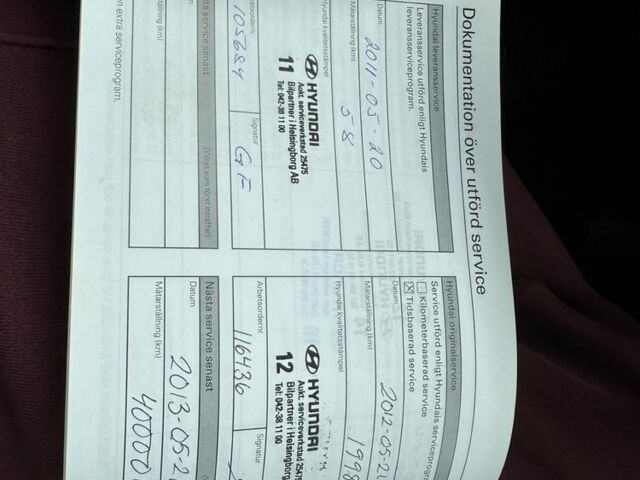 Dokumentation över utförd service
Hyundai leveransservice
Leveransservice utförd enligt Hyundais
leveransserviceprogram.
Datum
2011-05-20
Mätarställning (km)
58
Hyundai kvalitetsstämpel
HYUNDAI
Aukt. serviceverkstad 25475
11 Bilpartner i Helsingborg AB
Tel: 042-38 11 00
Signatur
105684
GF
sta service senast
(Vilket som först inträffar)
tarställning (km)
n extra serviceprogram.
Hyundai originalservice
Service utförd enligt Hyundais serviceprogr
Kilometerbaserad service
Tidsbaserad service
Datum
2012-05-2
Mätarställning (km)
1998
Hyundai kvalitetsstämpel
HYUNDAI
Aukt. serviceverkstad 2547
12 Bilpartner i Helsingborg
Tel: 042-38 11 00
Arbetsordernr
Signatur
116436
Nästa service senast
Datum
2013-05-2
Mätarställning (km)
40000